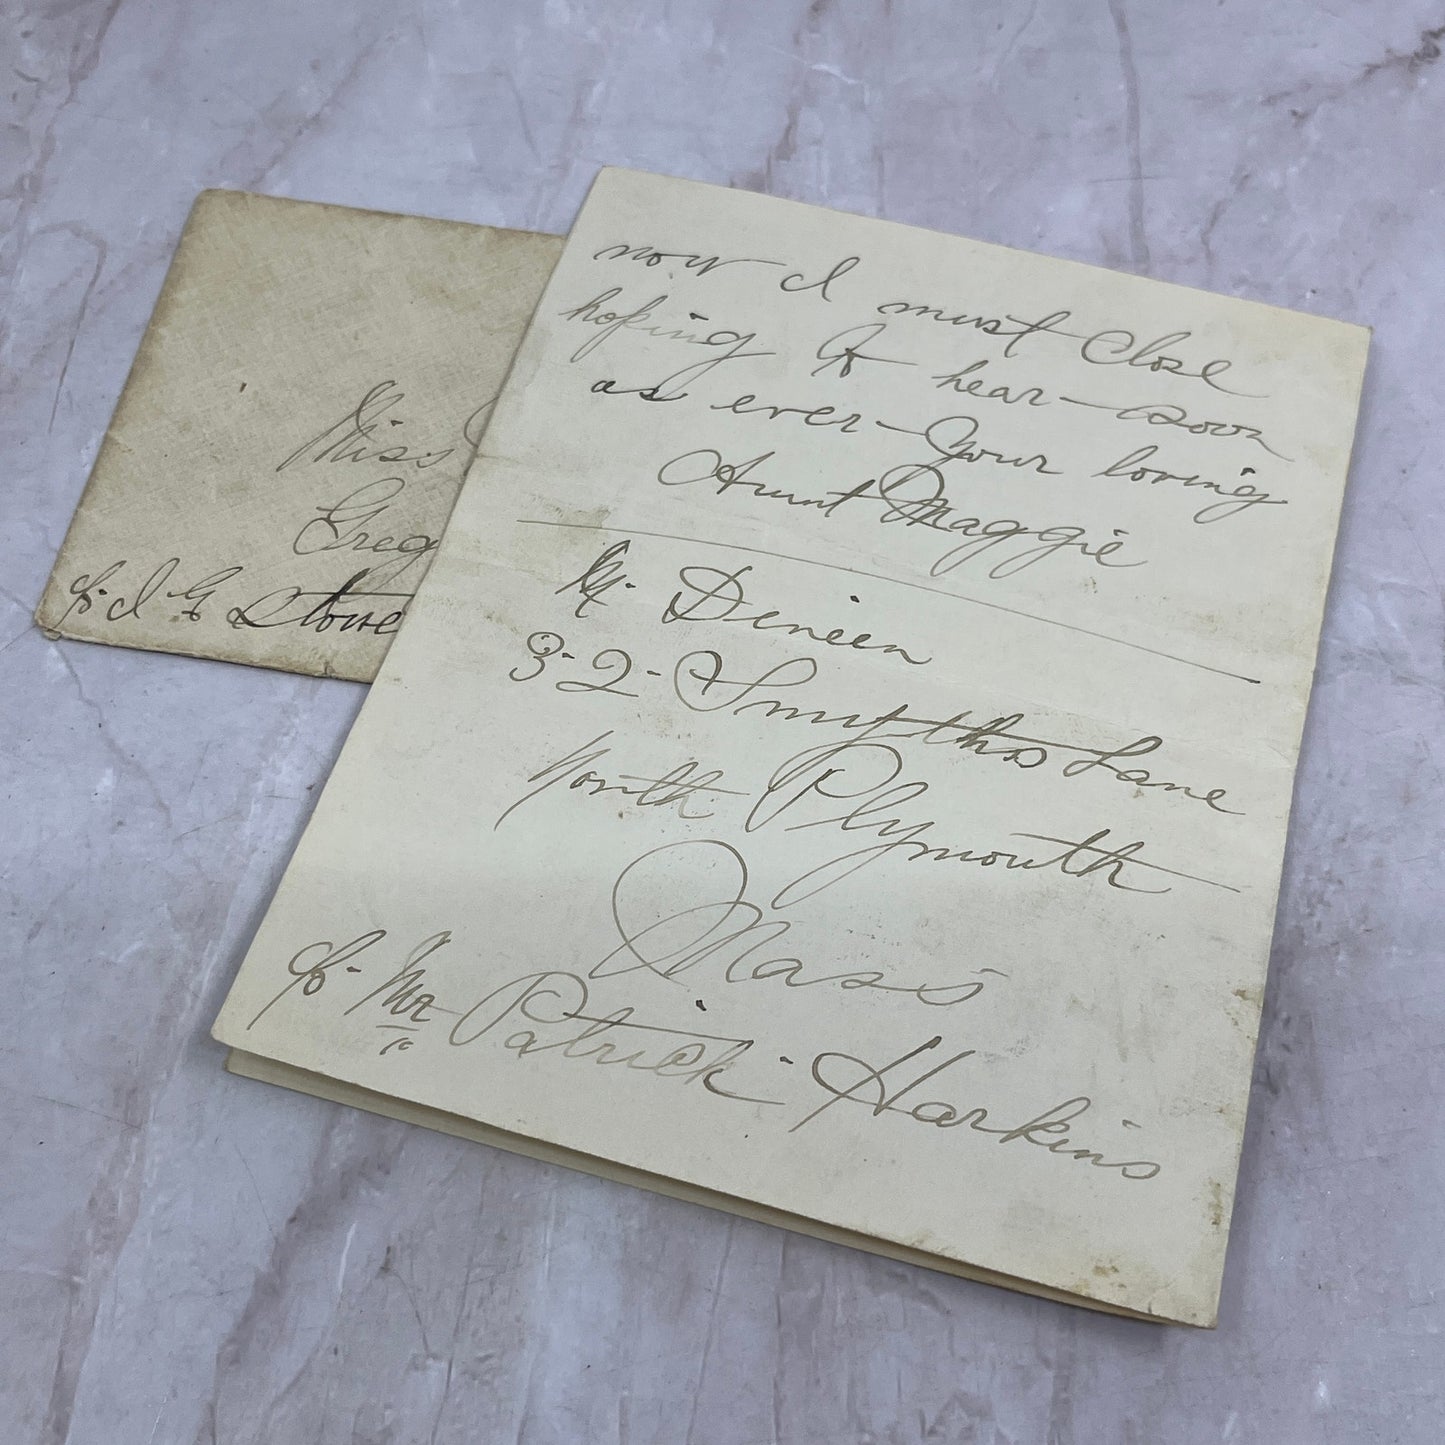 Miss
Greg
c/o I G Stowe
now I must close
hoping to hear - soon
as ever - Your loving
Aunt Maggie
M. Dineen
32 - Smyths Lane
North Plymouth
Mass
c/o - Mr Patrick - Harkins